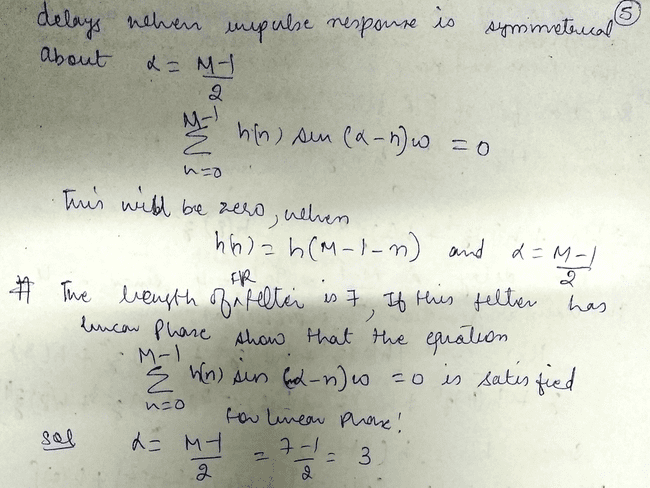 delays when impulse response is symmetrical 5
about α = M-1/2
M-1 Σ n=0 h(n) sin (α-n)ω = 0
This will be zero, when
h(n) = h(M-1-n) and α = M-1/2
# The length of FIR filter is 7, If this filter has
linear Phase show that the equation
M-1 Σ n=0 h(n) sin (α-n)ω = 0 is satisfied
for linear phase!
sol α = M-1/2 = 7-1/2 = 3